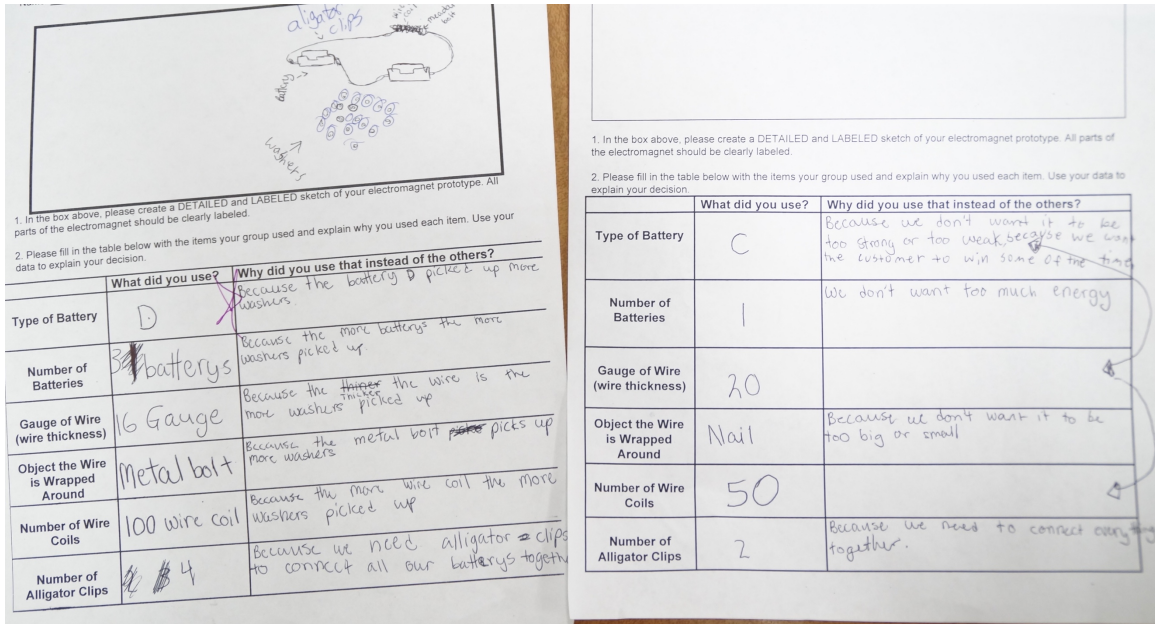 aligator
clips
coil
bolt
battery
washers
1. In the box above, please create a DETAILED and LABELED sketch of your electromagnet prototype. All
parts of the electromagnet should be clearly labeled.
2. Please fill in the table below with the items your group used and explain why you used each item. Use your
data to explain your decision.
What did you use?
Why did you use that instead of the others?
Type of Battery
D
Because the battery D picked up more
washers.
Number of
Batteries
3 batterys
Because the more batterys the more
washers picked up.
Gauge of Wire
(wire thickness)
16 Gauge
Because the thiner thicker the wire is the
more washers picked up
Object the Wire
is Wrapped
Around
Metal bolt
Because the metal bolt picks up
more washers
Number of Wire
Coils
100 wire coil
Because the more wire coil the more
washers picked up
Number of
Alligator Clips
4
Because we need alligator clips
to connect all our batterys togeth
1. In the box above, please create a DETAILED and LABELED sketch of your electromagnet prototype. All parts of
the electromagnet should be clearly labeled.
2. Please fill in the table below with the items your group used and explain why you used each item. Use your data to
explain your decision.
What did you use?
Why did you use that instead of the others?
Type of Battery
C
Because we don't want it to be
too strong or too weak, because we want
the customer to win some of the time,
Number of
Batteries
1
We don't want too much energy
Gauge of Wire
(wire thickness)
20
Object the Wire
is Wrapped
Around
Nail
Because we don't want it to be
too big or small
Number of Wire
Coils
50
Number of
Alligator Clips
2
Because we need to connect everything
together.